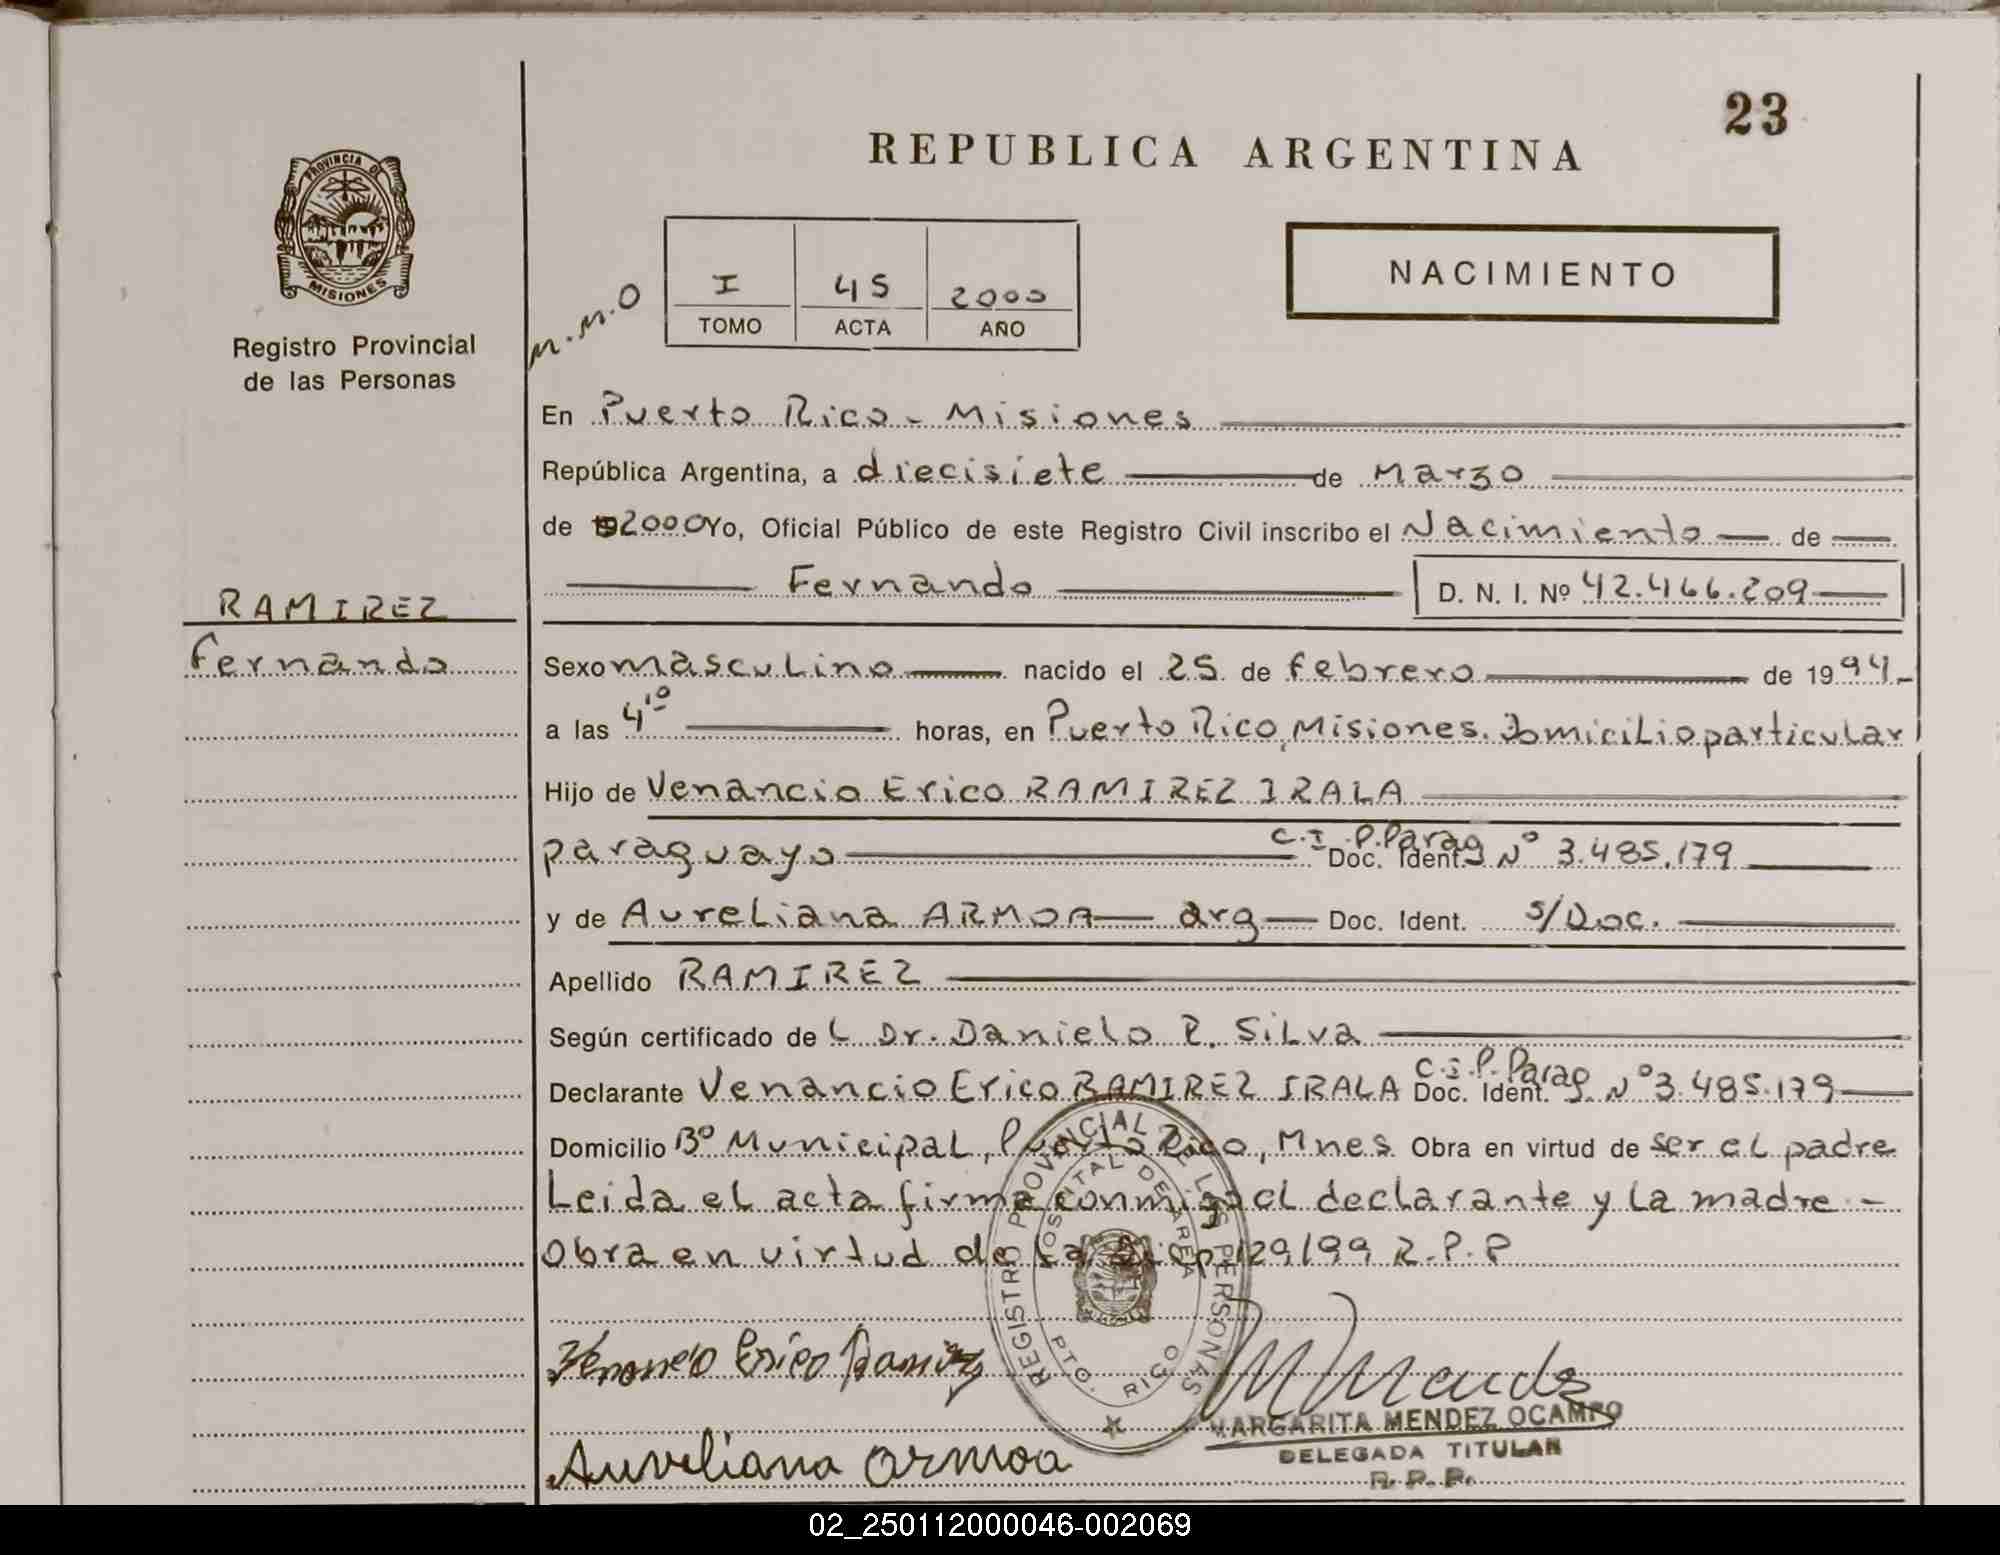 23
REPUBLICA ARGENTINA
PROVINCIA DE
MISIONES
Registro Provincial
de las Personas
M.M.O
I 45 2000
TOMO ACTA AÑO
NACIMIENTO
En Puerto Rico - Misiones
República Argentina, a diecisiete de Marzo
de 2000 Yo, Oficial Público de este Registro Civil inscribo el Nacimiento de
Fernando D. N. I. Nº 42.466.209
RAMIREZ
Fernando
Sexo masculino nacido el 25 de febrero de 1994
a las 4¹⁰ horas, en Puerto Rico, Misiones. Domicilio particular
Hijo de Venancio Erico RAMIREZ IRALA
paraguayo C.I.P.Parag Doc. Ident. Nº 3.485.179
y de Aureliana ARMOA arg Doc. Ident. s/Doc.
Apellido RAMIREZ
Según certificado de L Dr. Danielo R. Silva
Declarante Venancio Erico RAMIREZ IRALA C.I.P.Parag Doc. Ident. Nº 3.485.179
Domicilio Bº Municipal, Puerto Rico, Mnes Obra en virtud de ser el padre
Leida el acta firma conmigo el declarante y la madre -
Obra en virtud de la Disp 129/99 R.P.P
REGISTRO PROVINCIAL DE LAS PERSONAS
HOSPITAL DE AREA
PTO. RICO
Venancio Erico Ramirez
M Mendez
MARGARITA MENDEZ OCAMPO
DELEGADA TITULAR
R. P. P.
Aureliana armoa
02_250112000046-002069